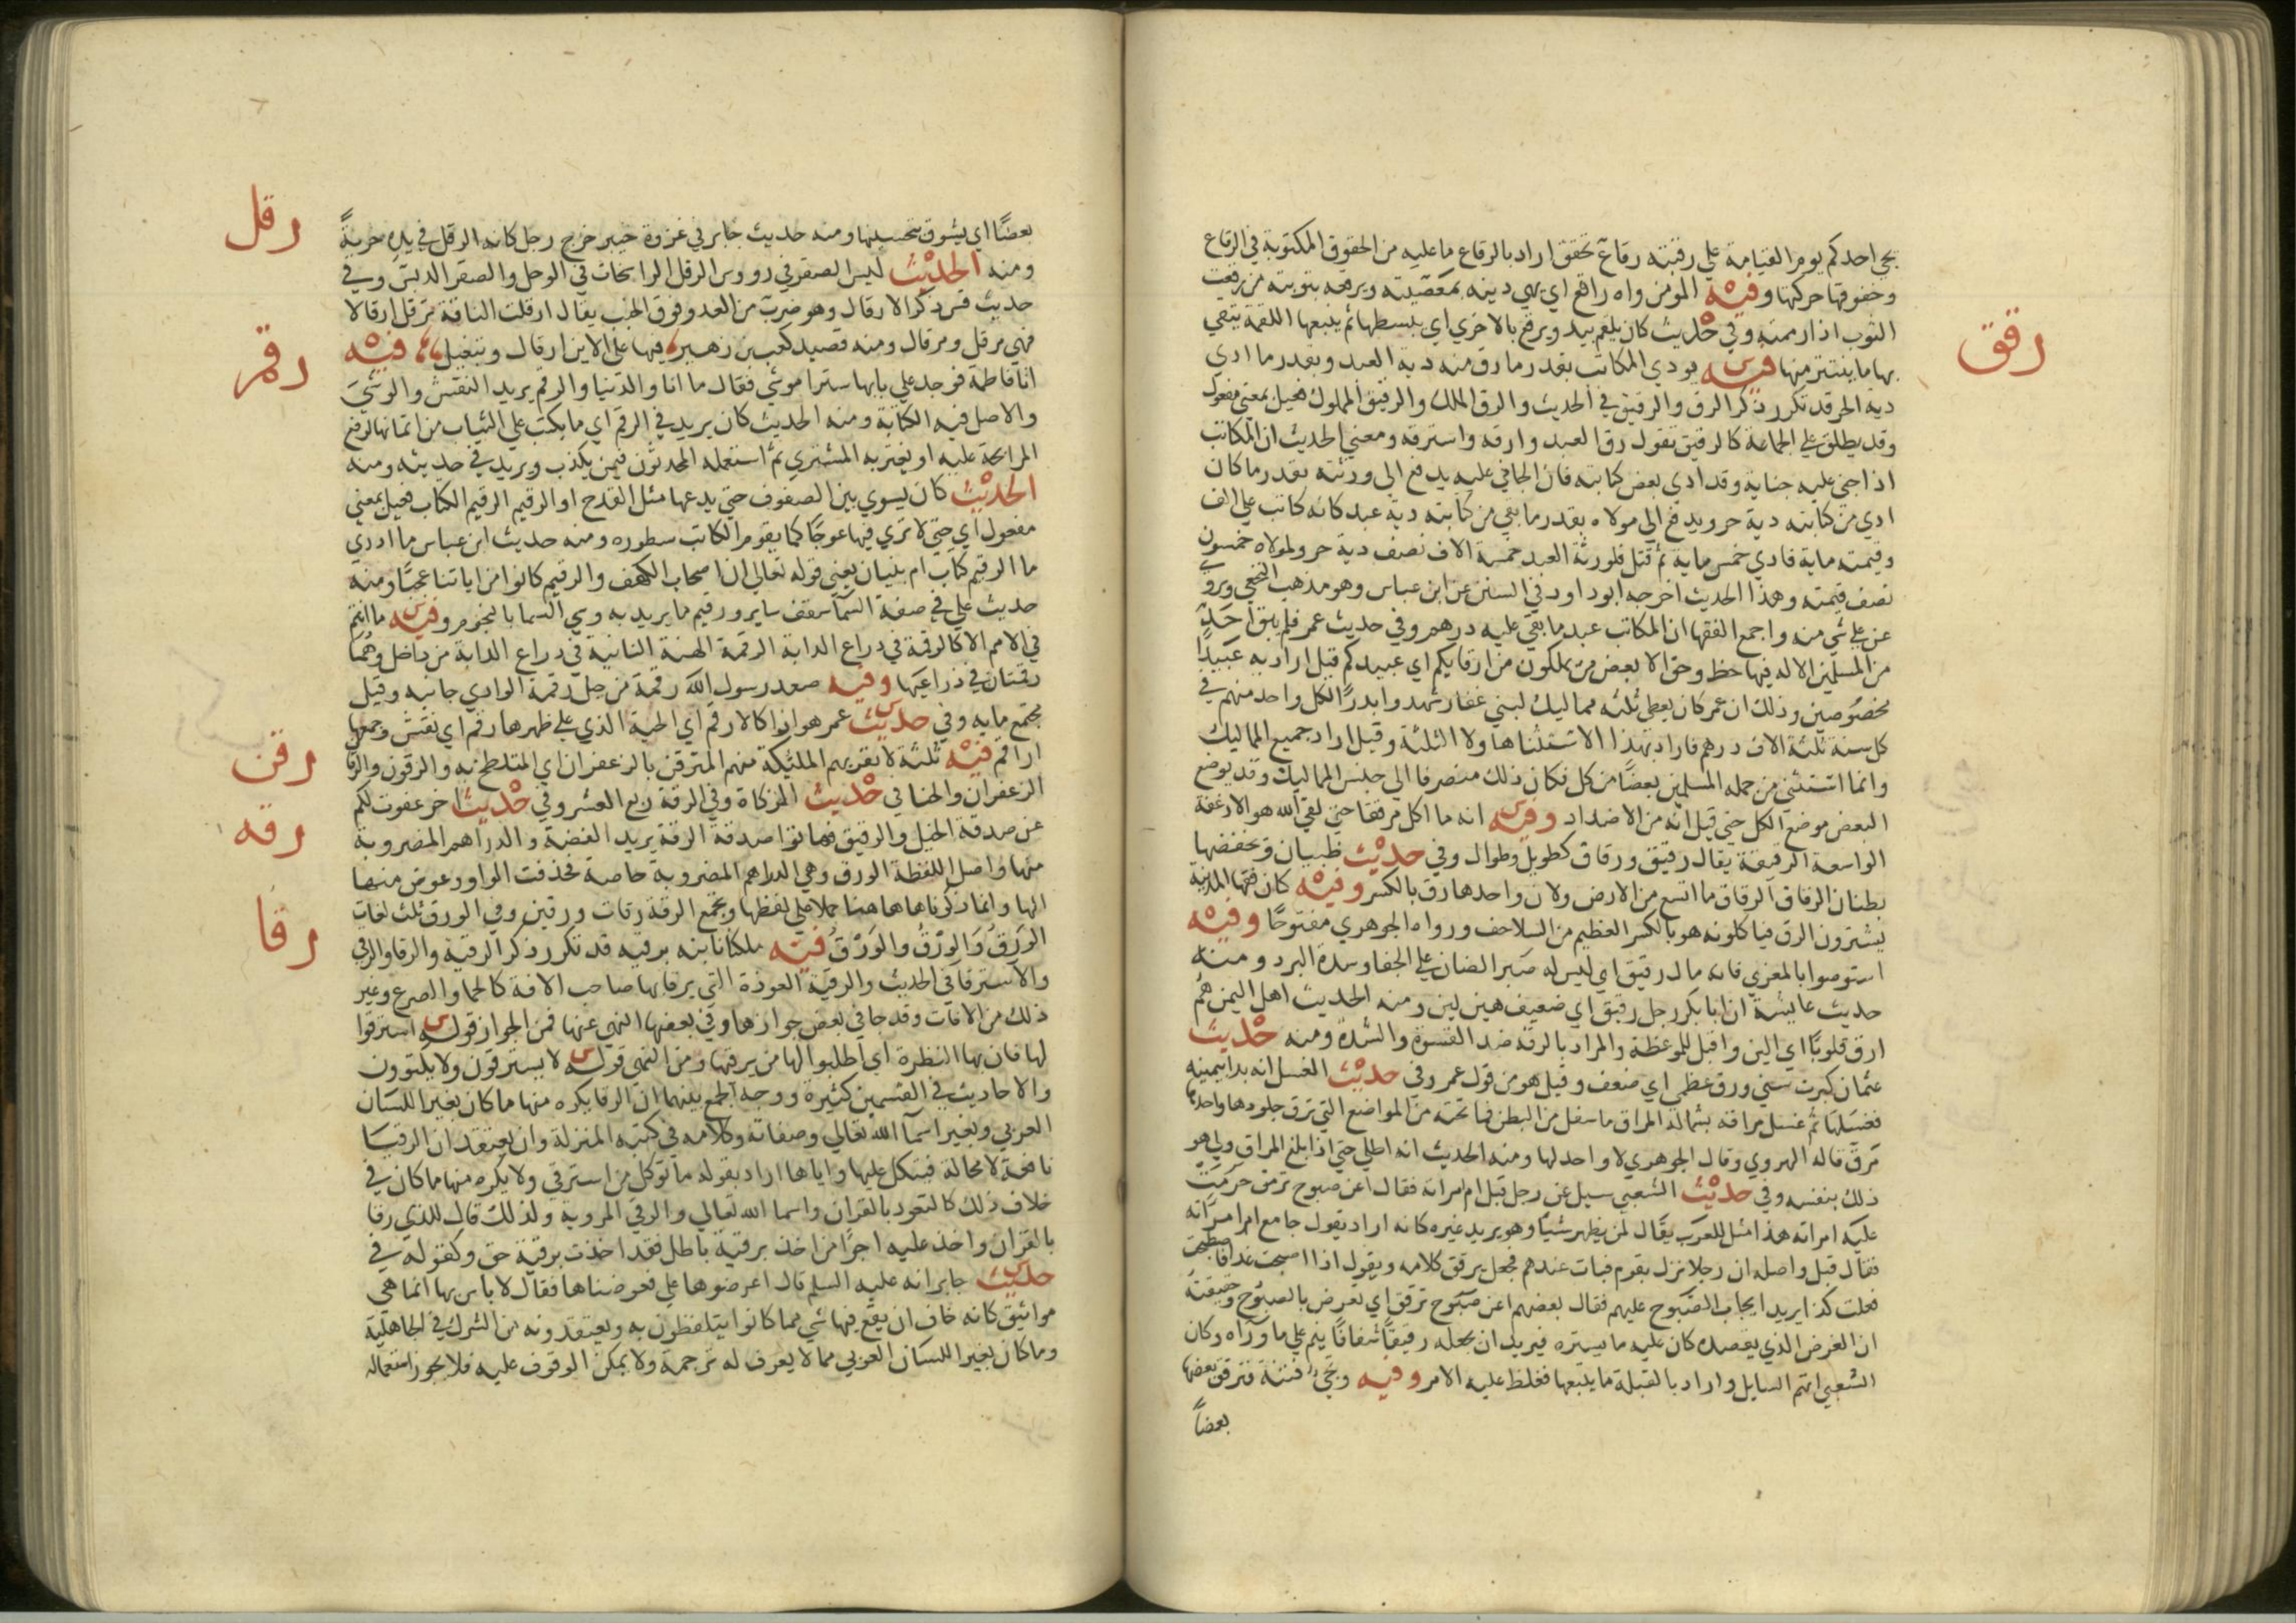 يجي احدكم يوم القيامة علي رقبته رقاع تخفق اراد بالرقاع ما عليه من الحقوق المكتوبة في الرقاع
وخفوقها حركتها وفيه المومن واه راقع اي يهي دينه بمعصيته ويرقعه بتوبته من رقعت
رقق
الثوب اذا رممته وفي حديث كان يلقم بيد ويرقع بالاخري اي يبسطها ثم يتبعها اللقمة يتقي
بها ما ينتثر منها فيه يودي المكاتب بقدر ما رق منه دية العبد وبقدر ما ادي
دية الحر قد تكرر ذكر الرق والرقيق في الحديث والرق الملك والرقيق المملوك فعيل بمعني مفعول
وقد يطلق علي الجماعة كالرفيق تقول رق العبد وارقه واسترقه ومعني الحديث ان المكاتب
اذا جني عليه جناية وقد ادي بعض كتابته فان الجاني عليه يدفع الي ورثته بقدر ما كان
ادي من كتابته دية حر ويدفع الي مولاه بقدر ما بقي من كتابته دية عبد كانه كاتب علي الف
وقيمته ماية فادي خمس ماية ثم قتل فلورثة العبد خمسة الاف نصف دية حر ولمولاه خمسون
نصف قيمته وهذا الحديث اخرجه ابو داود في السنن عن ابن عباس وهو مذهب النخعي ويروي
عن علي شي منه واجمع الفقها ان المكاتب عبد ما بقي عليه درهم وفي حديث عمر فلم يبق احد
من المسلمين الا له فيها حظ وحق الا بعض من تملكون من ارقايكم اي عبيدكم قيل اراد به عبيدا
مخصوصين وذلك ان عمر كان يعطي ثلثه مماليك لبني غفار شهدوا بدرا لكل واحد منهم في
كل سنة ثلثة الاف درهم فاراد بهذا الاستثنا هاولا الثلثة وقيل اراد جميع المماليك
وانما استثني من جمله المسلمين بعضا من كل فكان ذلك منصرفا الي جنس المماليك وقد يوضع
البعض موضع الكل حتي قيل انه من الاضداد وفيه انه ما اكل مرققا حتي لقي الله هو الارغفة
الواسعة الرقيقة يقال رقيق ورقاق كطويل وطوال وفي حديث ظبيان وتخفضها
بطنان الرقاق الرقاق ما اتسع من الارض ولان واحدها رق بالكسر وفيه كان فقها المدينة
يشترون الرق فياكلونه هو بالكسر العظيم من السلاحف ورواه الجوهري مفتوحا وفيه
استوصوا بالمعزي فانه مال رقيق اي ليس له صبر الضان علي الجفا وشدة البرد ومنه
حديث عايشة ان ابا بكر رجل رقيق اي ضعيف هين لين ومنه الحديث اهل اليمن هم
ارق قلوبا اي الين واقبل للموعظة والمراد بالرقة ضد القسوة والشدة ومنه حديث
عثمان كبرت سني ورق عظمي اي ضعف وقيل هو من قول عمر وفي حديث الغسل انه بدا بيمينه
فغسلها ثم غسل مراقه بشماله المراق ما سفل من البطن فما تحته من المواضع التي ترق جلودها واحدها
مرق قاله الهروي وقال الجوهري لا واحد لها ومنه الحديث انه اطلي حتي اذا بلغ المراق ولي هو
ذلك بنفسه وفي حديث الشعبي سيل عن رجل قبل ام امراته فقال اعن صبوح ترقق حرمت
عليه امراته هذا مثل للعرب يقال لمن يظهر شيا وهو يريد غيره كانه اراد يقول جامع ام امراته
فقال قبل واصله ان رجلا نزل بقوم فبات عندهم فجعل يرقق كلامه ويقول اذا اصبحت غدا فاصطبحت
فعلت كذا يريد ايجاب الصبوح عليهم فقال بعضهم اعن صبوح ترقق اي تعرض بالصبوح وحقيقته
ان الغرض الذي يقصده كان عليه ما يستره فيريد ان يجعله رقيقا شفافا ينم علي ما وراه وكان
الشعبي اتهم السايل واراد بالقبلة ما يتبعها فغلظ عليه الامر وفيه وتجي فتنة فترقق بعضها
بعضا
رقل
بعضا اي يشوق بتحسينها ومنه حديث جابر في غزوة خيبر خرج رجل كانه الرقل في يده حربة
ومنه الحديث ليس الصقر في رووس الرقل الراسخات في الوحل والصقر الدبس وفي
حديث قس ذكر الارقال وهو ضرب من العدو فوق الخبب يقال ارقلت الناقة ترقل ارقالا
رقم
فهي مرقل ومرقال ومنه قصيد كعب بن زهير فيها علي الاين ارقال وتبغيل فيه
اتا فاطمة فوجد علي بابها سترا موشي فقال ما انا والدنيا والرقم يريد النقش والوشي
والاصل فيه الكتابة ومنه الحديث كان يريد في الرقم اي ما يكتب علي الثياب من اثمانها لتقع
المرابحة عليه او يغتر به المشتري ثم استعمله المحدثون فيمن يكذب ويزيد في حديثه ومنه
الحديث كان يسوي بين الصفوف حتي يدعها مثل القدح او الرقيم الرقيم الكتاب فعيل بمعني
مفعول اي حتي لا تري فيها عوجا كما يقوم الكاتب سطوره ومنه حديث ابن عباس ما ادري
ما الرقيم كتاب ام بنيان يعني قوله تعالي ان اصحاب الكهف والرقيم كانوا من اياتنا عجبا ومنه
حديث علي في صفة السما سقف ساير ورقيم ماير يريد به وشي السما بالنجوم وفيه ما انتم
في الامم الا كالرقمة في ذراع الدابة الرقمة الهنة الناتية في ذراع الدابة من داخل وهما
رقمتان في ذراعيها وفيه صعد رسول الله رقمة من جبل رقمة الوادي جانبه وقيل
مجتمع مايه وفي حديث عمر هو اذا كالارقم اي الحية الذي علي ظهرها رقم اي نقش وجمعها
رقن
اراقم فيه ثلثة لا تقربهم الملئكة منهم المترقن بالزعفران اي المتلطخ به والرقون والرقا
رقه
الزعفران والحنا في حديث الزكاة وفي الرقة ربع العشر وفي حديث اخر عفوت لكم
عن صدقة الخيل والرقيق فهاتوا صدقة الرقة يريد الفضة والدراهم المضروبة
منها واصل اللفظة الورق وهي الدراهم المضروبة خاصة فحذفت الواو وعوض منها
الها وانما ذكرناها هاهنا حملا علي لفظها وتجمع الرقة رقات ورقين وفي الورق ثلث لغات
رقا
الورق والورق والورق فيه ملكانا بنه برقيه قد تكرر ذكر الرقية والرقا والرقي
والاسترقا في الحديث والرقية العوذة التي يرقا بها صاحب الافة كالحما والصرع وغير
ذلك من الافات وقد جا في بعض جوازها وفي بعضها النهي عنها فمن الجواز قوله استرقوا
لها فان بها النظرة اي اطلبوا لها من يرقيها ومن النهي قوله لا يسترقون ولا يكتوون
والاحاديث في القسمين كثيرة ووجه الجمع بينهما ان الرقا يكره منها ما كان بغير اللسان
العربي وبغير اسما الله تعالي وصفاته وكلامه في كتبه المنزلة وان يعتقد ان الرقيا
نافعة لا محالة فيتكل عليها واياها اراد بقوله ما توكل من استرقي ولا يكره منها ما كان في
خلاف ذلك كالتعوذ بالقران واسما الله تعالي والرقي المروية ولذلك قال للذي رقا
بالقران واخذ عليه اجرا من اخذ برقية باطل فقد اخذت برقية حق وكقوله في
حديث جابر انه عليه السلم قال اعرضوها علي فعرضناها فقال لا باس بها انما هي
مواثيق كانه خاف ان يقع فيها شي مما كانوا يتلفظون به ويعتقدونه من الشرك في الجاهلية
وما كان بغير اللسان العربي مما لا يعرف له ترجمة ولا يمكن الوقوف عليه فلا يجوز استعماله